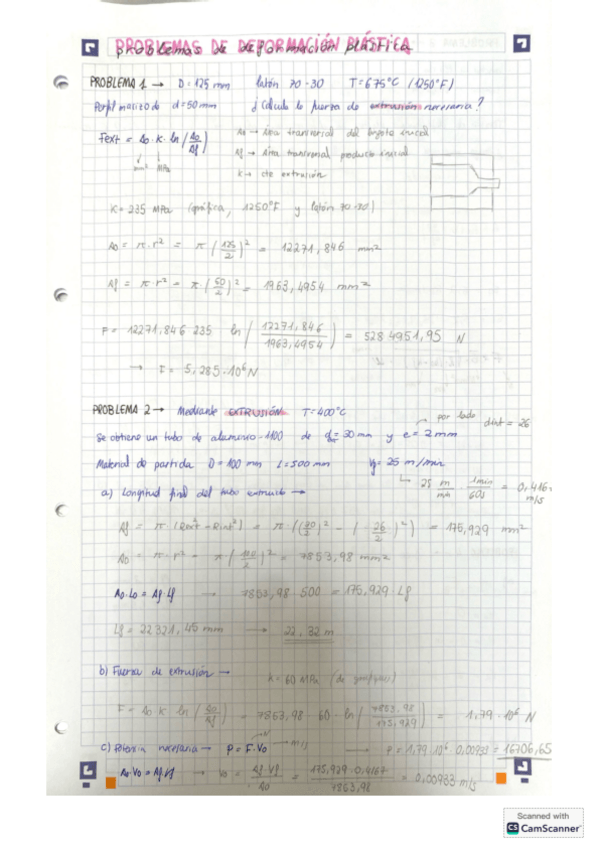 PROBLEMAS DE DEFORMACIÓN PLÁSTICA
PROBLEMA 1 → D = 125 mm latón 70-30 T = 675°C (1250°F)
Perfil macizo de d = 50 mm ¿Calcula la fuerza de extrusión necesaria?
Fext = Ao · K · ln (Ao/Af) Ao → Área transversal del lingote inicial
mm² MPa Af → Área transversal producto inicial
K → cte extrusión
K = 235 MPa (gráfica, 1250°F y latón 70-30)
Ao = π · r² = π (125/2)² = 12271,846 mm²
Af = π · r² = π (50/2)² = 1963,4954 mm²
F = 12271,846 · 235 ln (12271,846/1963,4954) = 5284951,95 N
→ F = 5,285 · 10⁶ N
PROBLEMA 2 → Mediante EXTRUSIÓN T = 400°C
por lado dint = 26
Se obtiene un tubo de aluminio-1100 de d = 30 mm y e = 2 mm
Material de partida D = 100 mm L = 500 mm Vf = 25 m/min
25 m/min · 1min/60s = 0,416 m/s
a) Longitud final del tubo extruido →
Af = π (Rext² - Rint²) = π · ((30/2)² - (26/2)²) = 175,929 mm²
Ao = π · r² = π (100/2)² = 7853,98 mm²
Ao·Lo = Af·Lf → 7853,98 · 500 = 175,929 · Lf
Lf = 22321,45 mm → 22,32 m
b) Fuerza de extrusión → K = 60 MPa (de gráficas)
F = Ao K ln (Ao/Af) 7853,98 · 60 · ln (7853,98/175,929) = 1,79 · 10⁶ N
c) Potencia necesaria → P = F · Vo → m/s → P = 1,79 · 10⁶ · 0,00933 = 16706,65
Ao·Vo = Af·Vf → Vo = Af·Vf/Ao = 175,929 · 0,4167/7853,98 = 0,00933 m/s
Scanned with
CS CamScanner